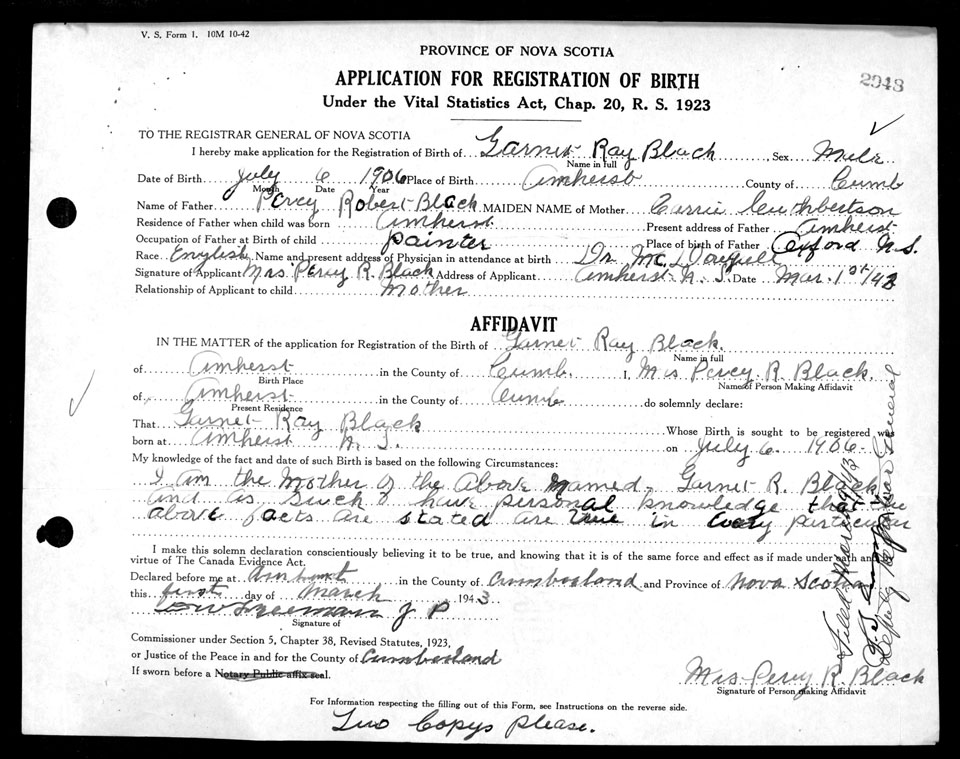 V. S. Form 1. 10M 10-42
PROVINCE OF NOVA SCOTIA
APPLICATION FOR REGISTRATION OF BIRTH
2948
Under the Vital Statistics Act, Chap. 20, R. S. 1923
TO THE REGISTRAR GENERAL OF NOVA SCOTIA
I hereby make application for the Registration of Birth of Garnet Ray Black, Sex Male
Name in full
Date of Birth July 6 1906 Place of Birth Amherst County of Cumb
Month Date Year
Name of Father Percy Robert Black MAIDEN NAME of Mother Carrie Cuthbertson
Residence of Father when child was born Amherst Present address of Father Amherst
Occupation of Father at Birth of child painter Place of birth of Father Oxford N.S.
Race English Name and present address of Physician in attendance at birth Dr Mc
Signature of Applicant Mrs Percy R. Black Address of Applicant Amherst N. S. Date Mar. 1st/43
Relationship of Applicant to child Mother
AFFIDAVIT
IN THE MATTER of the application for Registration of the Birth of Garnet Ray Black.
Name in full
of Amherst in the County of Cumb. I, Mrs Percy R. Black.
Birth Place Name of Person Making Affidavit
of Amherst in the County of Cumb do solemnly declare:
Present Residence
That Garnet Ray Black Whose Birth is sought to be registered was
born at Amherst N. S. on July 6 1906
My knowledge of the fact and date of such Birth is based on the following Circumstances:
I am the Mother of the Above named Garnet R. Black
and as such I have personal knowledge that the
above facts are stated are true in every particular
I make this solemn declaration conscientiously believing it to be true, and knowing that it is of the same force and effect as if made under oath and
virtue of The Canada Evidence Act.
Declared before me at Amherst in the County of Cumberland and Province of Nova Scotia
this first day of March 1943
Freeman J P
Signature of
Commissioner under Section 5, Chapter 38, Revised Statutes, 1923,
or Justice of the Peace in and for the County of Cumberland
If sworn before a Notary Public affix seal.
Mrs Percy R. Black
Signature of Person making Affidavit
For Information respecting the filling out of this Form, see Instructions on the reverse side.
Two Copys please.
Filed March 9/43
Deputy Registrar General